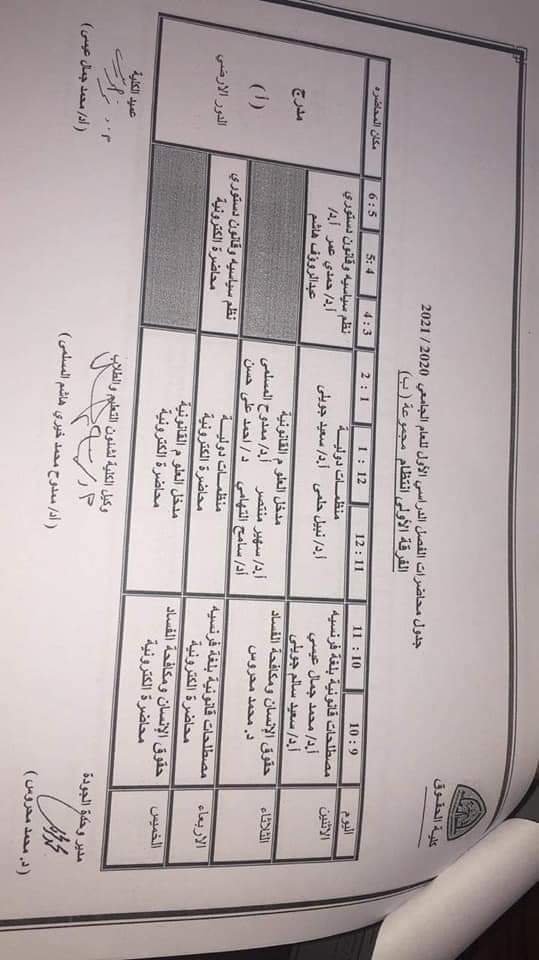 كلية الحقوق
جدول محاضرات الفصل الدراسي الأول للعام الجامعي 2020 / 2021
الفرقة الأولى انتظام مجموعة (ب)
اليوم 10 : 9 11 : 10 12 : 11 1 : 12 2 : 1 4 : 3 5: 4 6 : 5 مكان المحاضره
الاثنين
مصطلحات قانونية بلغة فرنسيه
أ.د/ محمد جمال عيسي
أ.د/ سعيد سالم جويلى
منظمات دوليـــة
أ.د/ نبيل حلمى أ.د/ سعيد جويلى
نظم سياسيه وقانون دستوري
أ.د/ حمدي عمر أ.د/
عبدالرووف هاشم
مدرج
( أ )
الدور الارضي
الثلاثاء
حقوق الإنسان ومكافحة الفساد
د. محمد محروس
مدخل العلوم القانونية
أ.د/ سهير منتصر أ.د/ ممدوح المسلمى
أ.د/ سامح التهامي د / احمد على حسن
الاربعاء
مصطلحات قانونية بلغة فرنسيه
محاضرة الكترونية
منظمات دوليـــة
محاضرة الكترونية
نظم سياسيه وقانون دستوري
محاضرة الكترونية
الخميس
حقوق الإنسان ومكافحة الفساد
محاضرة الكترونية
مدخل العلوم القانونية
محاضرة الكترونية
مدير وحدة الجودة
( د. محمد محروس )
وكيل الكلية لشئون التعليم والطلاب
( أ.د/ ممدوح محمد خيري هاشم المسلمى )
عميد الكلية
( أ.د/ محمد جمال عيسى )